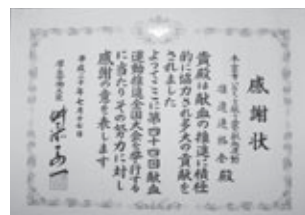 感謝状
推進連絡会 殿
貴殿は献血の推進に積極
的に協力され多大の貢献を
されました
よってここに第四十四回献血
運動推進全国大会を挙行する
に当たりその努力に対し
感謝の意を表します
平成二十年七月十七日
厚生労働大臣